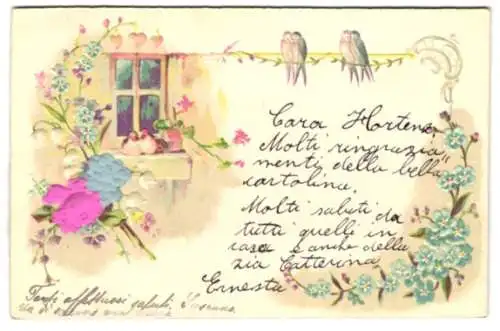 Cara Hortense
Molti ringrazia"
menti della bella
cartolina.
Molti saluti da
tutti quelli in
casa e anche della
zia Catterina
Ernesta
Tanti affettuosi saluti,